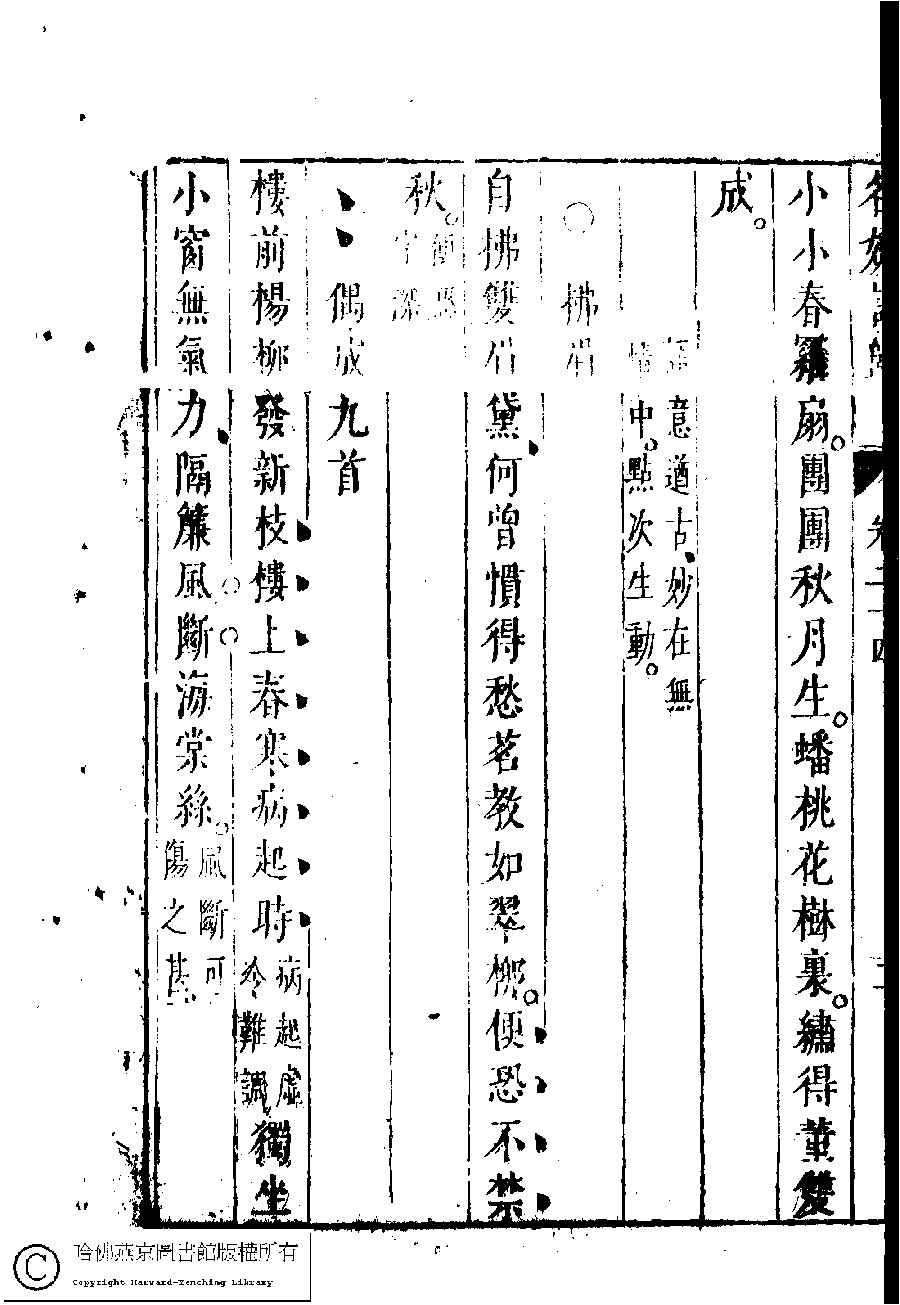 名媛詩歸 卷二十四
小小春羅扇。團團秋月生。蟠桃花樹裏。繡得董雙
成。
意遒古、妙在無
情中。點次生動。
○ 拂眉
自拂雙眉黛、何曾慣得愁。若教如翠柳。便恐不禁
秋。便恐字深
偶成九首
樓前楊柳發新枝樓上春寒病起時病起虛冷難調獨坐
小窗無氣力、隔簾風斷海棠絲。風斷可傷之甚
哈佛燕京圖書館版權所有
Copyright Harvard-Yenching Library